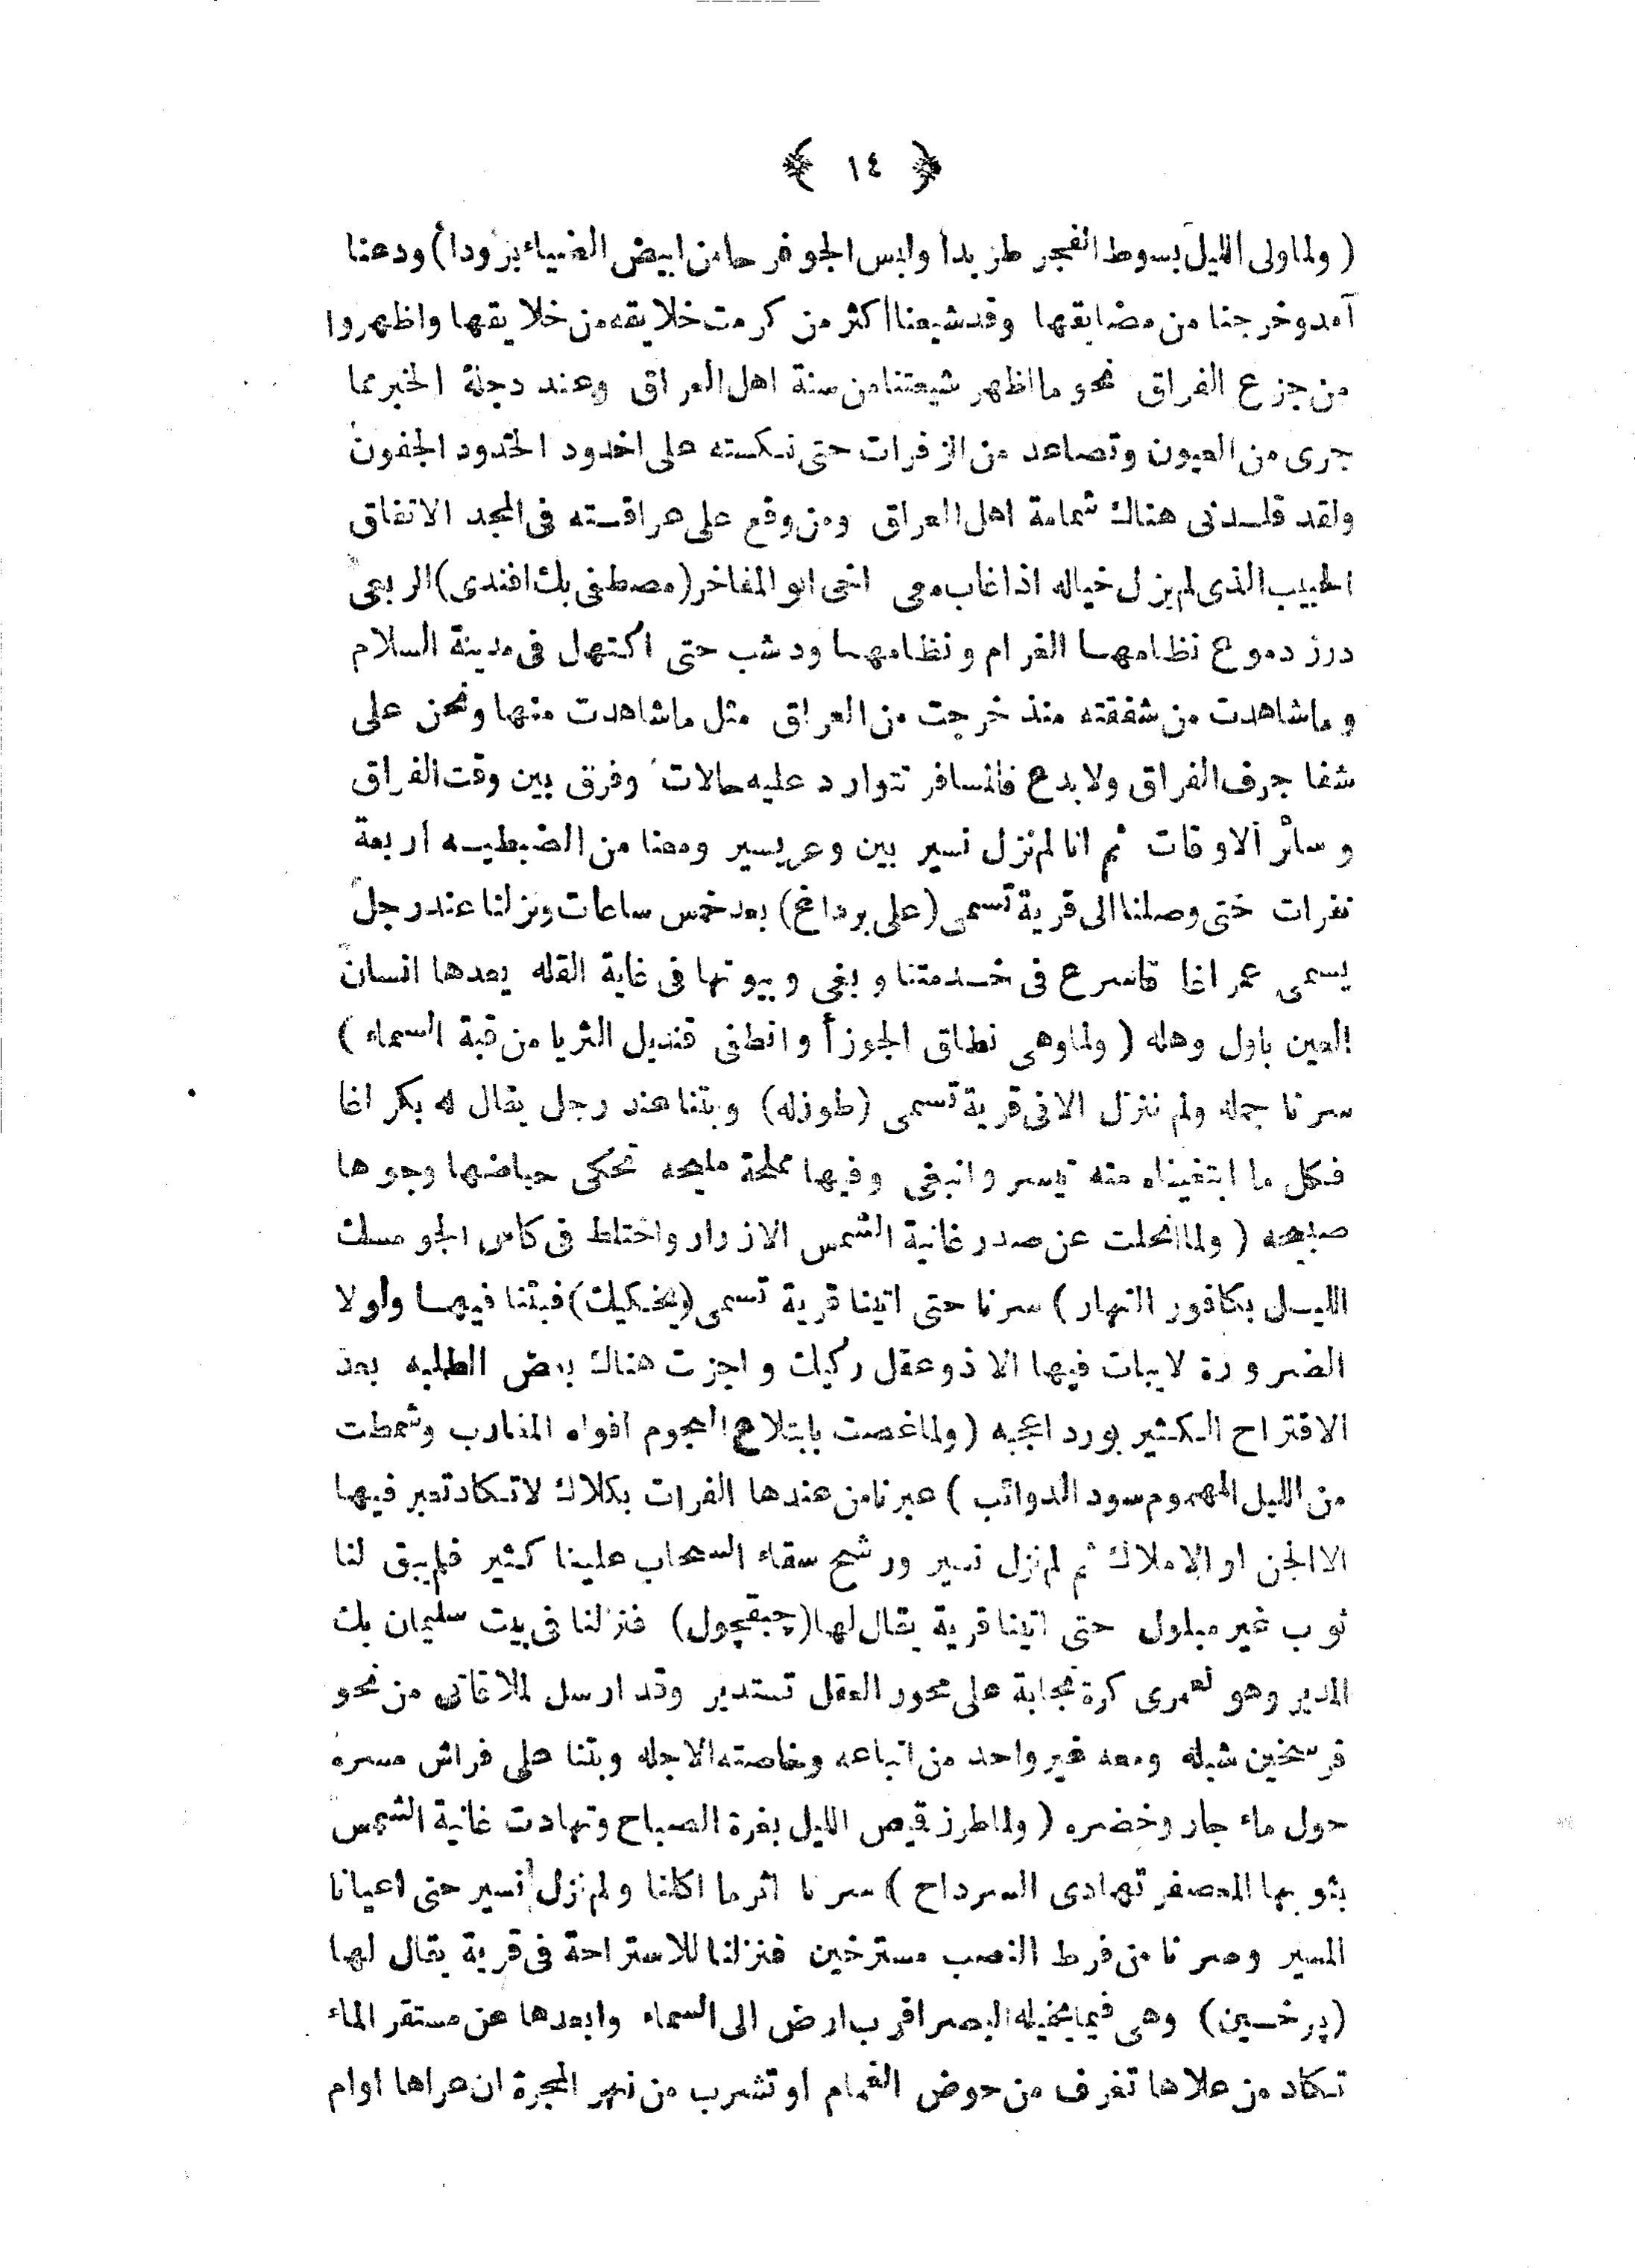 ﴿ ١٤ ﴾
( ولما ولى الليل بسوط الفجر طريدا ولبس الجو فرحا من ابيض الضياء برودا ) ودعنا
آمد وخرجنا من مضايقها وقد شيعنا اكثر من كرمت خلايقه من خلايقها واظهروا
من جزع الفراق نحو ما اظهر شيعتنا من سنة اهل العراق وعند دجلة الخبر مما
جرى من العيون وتصاعد من الزفرات حتى نكسته على اخدود الخدود الجفون
ولقد قلدنى هناك شمامة اهل العراق ومن وقع على عراقته فى المجد الاتفاق
الحبيب الذى لم يزل خياله اذا غاب معى اخى ابو المفاخر (مصطفى بك افندى) الربعى
درر دموع نظامها الغرام ونظامها ود شب حتى اكتهل فى مدينة السلام
وما شاهدت من شفقته منذ خرجت من العراق مثل ما شاهدت منها ونحن على
شفا جرف الفراق ولا بدع فالمسافر تتوارد عليه حالات وفرق بين وقت الفراق
وسائر الاوقات ثم انا لم نزل نسير بين وعر يسير ومعنا من الضبطيه اربعة
نفرات حتى وصلنا الى قرية تسمى (على برداغ) بعد خمس ساعات ونزلنا عند رجل
يسمى عمر اغا فاسرع فى خدمتنا وبغى وبيوتها فى غاية القله يعدها انسان
العين باول وهله ( ولما وهى نطاق الجوزأ وانطفى قنديل الثريا من قبة السماء )
سرنا جمله ولم ننزل الا فى قرية تسمى (طوزله) وبتنا عند رجل يقال له بكر اغا
فكل ما ابتغيناه منه تيسر وانبغى وفيها مملحة مليحه تحكى حياضها وجوها
صبيحه ( ولما انحلت عن صدر غانية الشمس الازرار واختلط فى كاس الجو مسك
الليل بكافور النهار ) سرنا حتى اتينا قرية تسمى فبتنا فيها ولولا
الضرورة لا يبات فيها الا ذو عقل ركيك واجزت هناك بعض الطلبه بعد
الاقتراح الكثير بورد اعجبه ( ولما غصت بابتلاع النجوم افواه المغارب وشمطت
من الليل المهموم سود الذوائب ) عبرنا من عندها الفرات بكلاك لا تكاد تعبر فيها
الا الجن او الاملاك ثم لم نزل نسير ورشح سقاء السحاب علينا كثير فلم يبق لنا
ثوب غير مبلول حتى اتينا قرية يقال لها (چبقچول) فنزلنا فى بيت سليمان بك
المدير وهو لعمرى كرة نجابة على محور العقل تستدير وقد ارسل لملاقاتى من نحو
فرسخين شبله ومعه غير واحد من اتباعه وخاصته الاجله وبتنا على فراش مسره
حول ماء جار وخضره ( ولما طرز قيص الليل بغرة الصباح وتهادت غانية الشمس
بثوبها المعصفر تهادى السرداح ) سرنا اثر ما اكلنا ولم نزل نسير حتى اعيانا
المسير وصرنا من فرط النصب مسترخين فنزلنا للاستراحة فى قرية يقال لها
(پرخسين) وهى فيما يخيله البصر اقرب ارض الى السماء وابعدها عن مستقر الماء
تكاد من علاها تغرف من حوض الغمام او تشرب من نهر المجرة ان عراها اوام